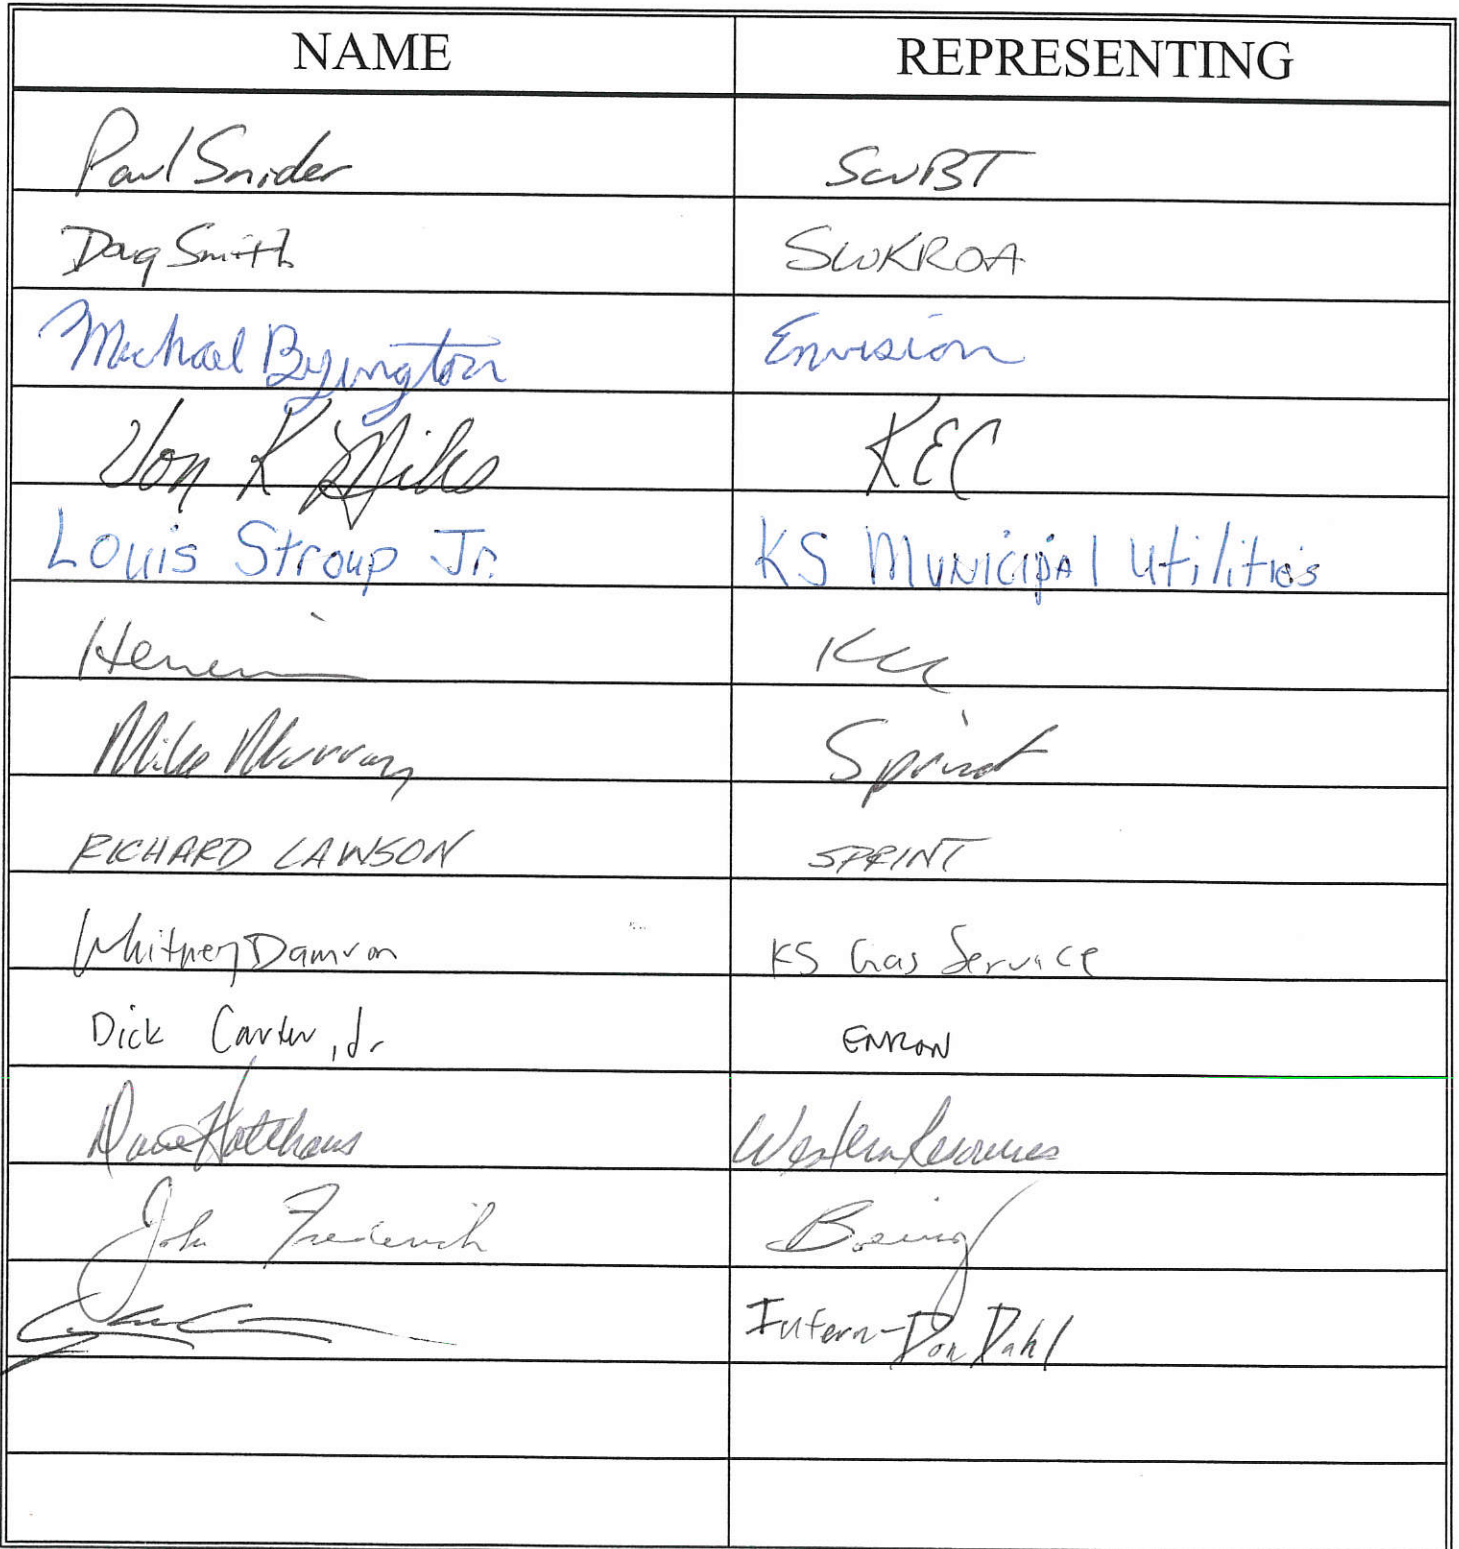 NAME REPRESENTING
Paul Snider SWBT
Doug Smith SWKROA
Michael Byington Envision
KEC
Louis Stroup Jr. KS Municipal Utilities
KCC
Mike Murray Sprint
RICHARD LAWSON SPRINT
Whitney Damron KS Gas Service
Dick Carter, Jr. ENRON
Dave Holthaus Western Resources
John Boeing
Intern-Don Dahl